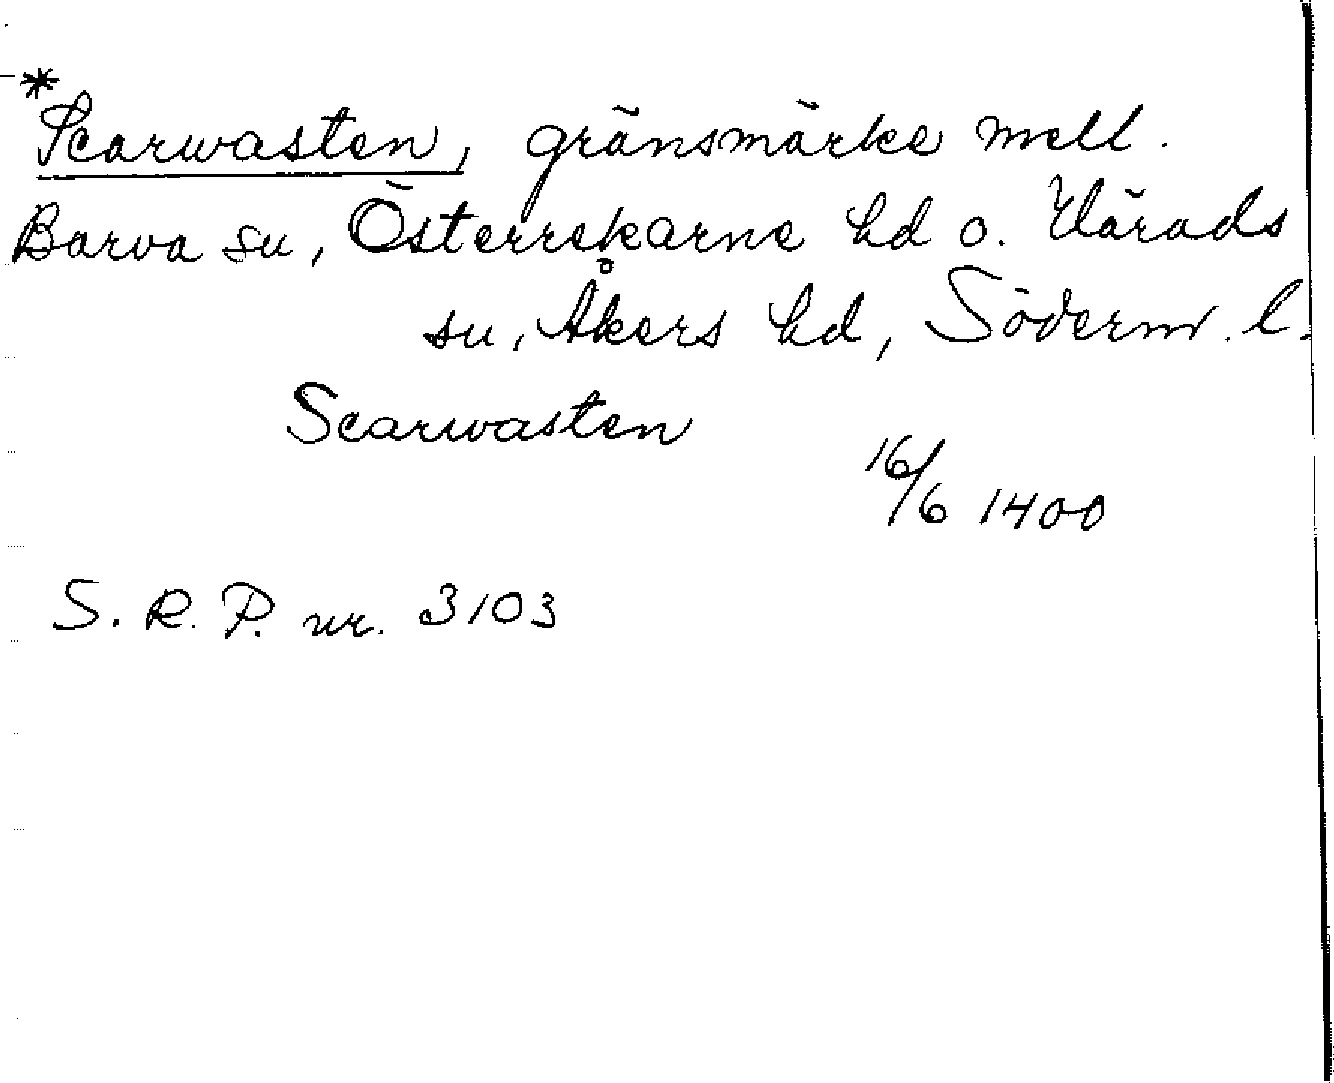 *Scarwasten, gränsmärke mell.
Barva su, Österrekarne hd o. Härads
su, Åkers hd, Söderm. l.
Scarwasten
16/6 1400
S. R. P. nr. 3103